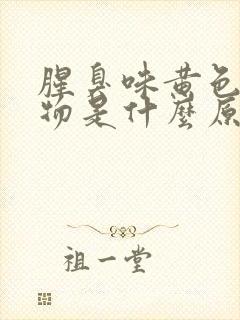 腥臭味黄色
物是什麼原
祖一堂